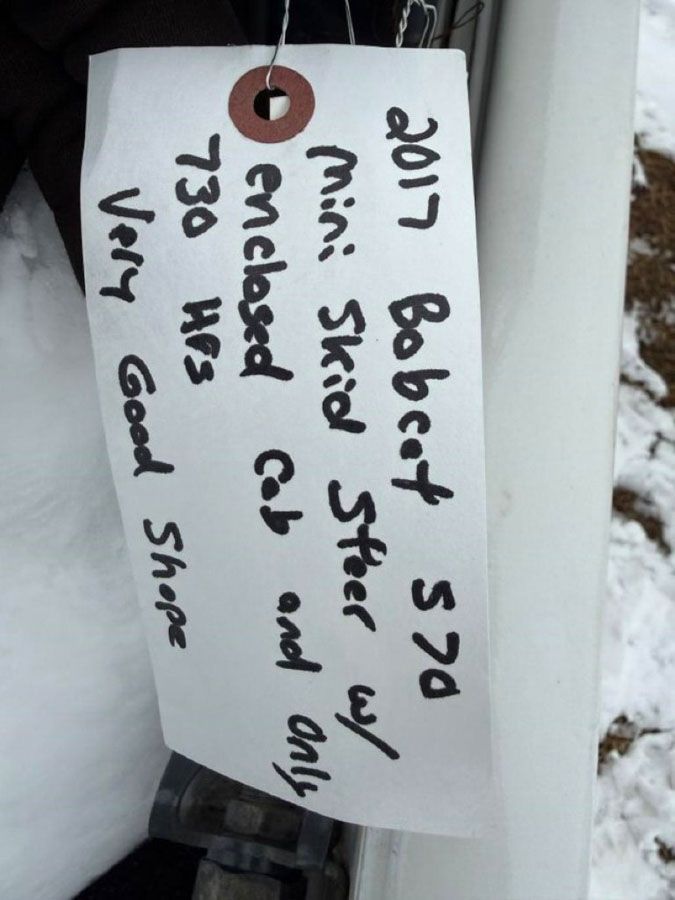 2017 Bobcat S70
Mini Skid Steer w/
enclosed Cab and only
730 HRS
Very Good Shape